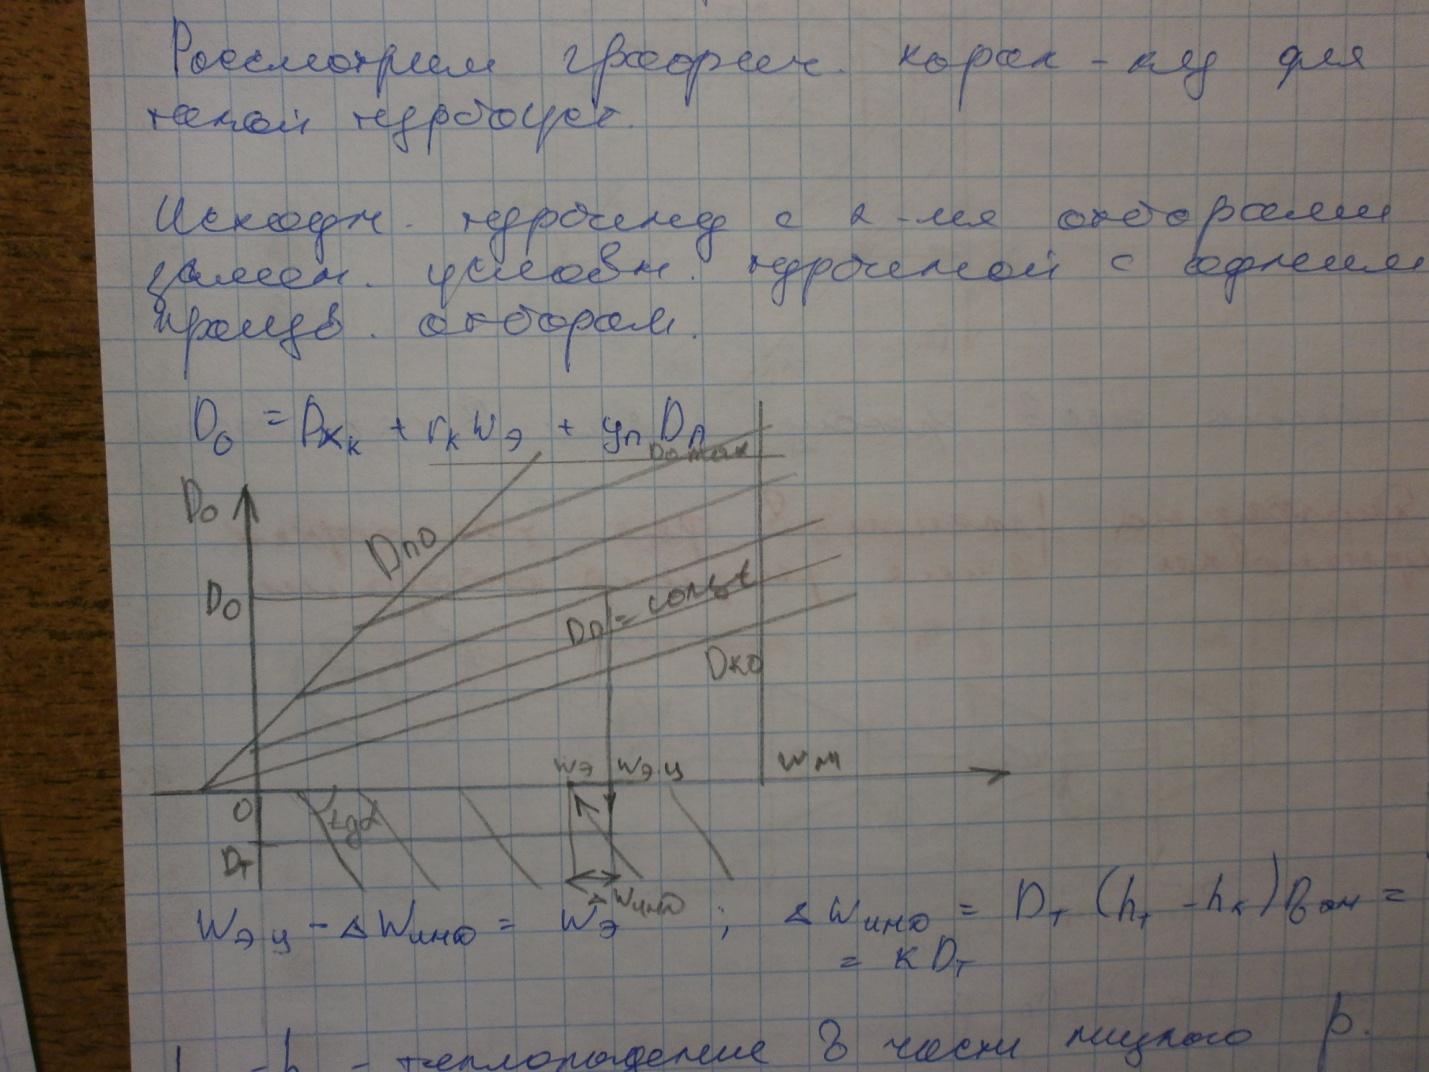 Рассмотрим графич. харак-ку для
такой турбоуст.
Исходн. турбину с 2-мя отборами
замен. условн. турбиной с одним
произв. отбором.
D₀ = Dхк + rк Wэ + yп Dп
D₀ max
D₀
Dпо
D₀
Dп = const
Dко
Wэ Wэ.ц Wм
0
tgα
Dт
ΔWино
Wэц - ΔWино = Wэ ; ΔWино = Dт (hт - hк)
= к Dт
- теплопадение в части низкого р.